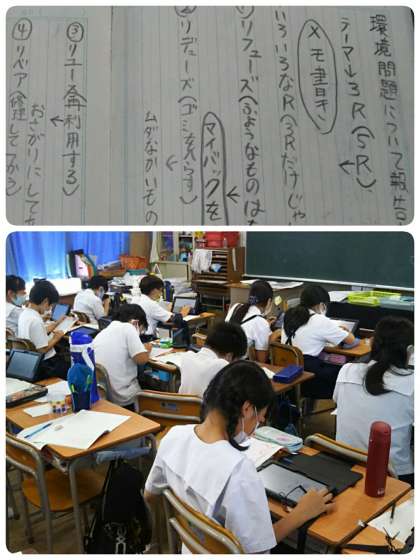 環境問題について報告
テーマ→3R(5R)
メモ書き
いろいろなR(3Rだけじゃ
リフューズ(ふようなものは
マイバックを
②リデュース(ゴミを減らす)
ムダなかいもの
③リユース(再利用する)
おさがりにして
④リペア(修理してつかう)